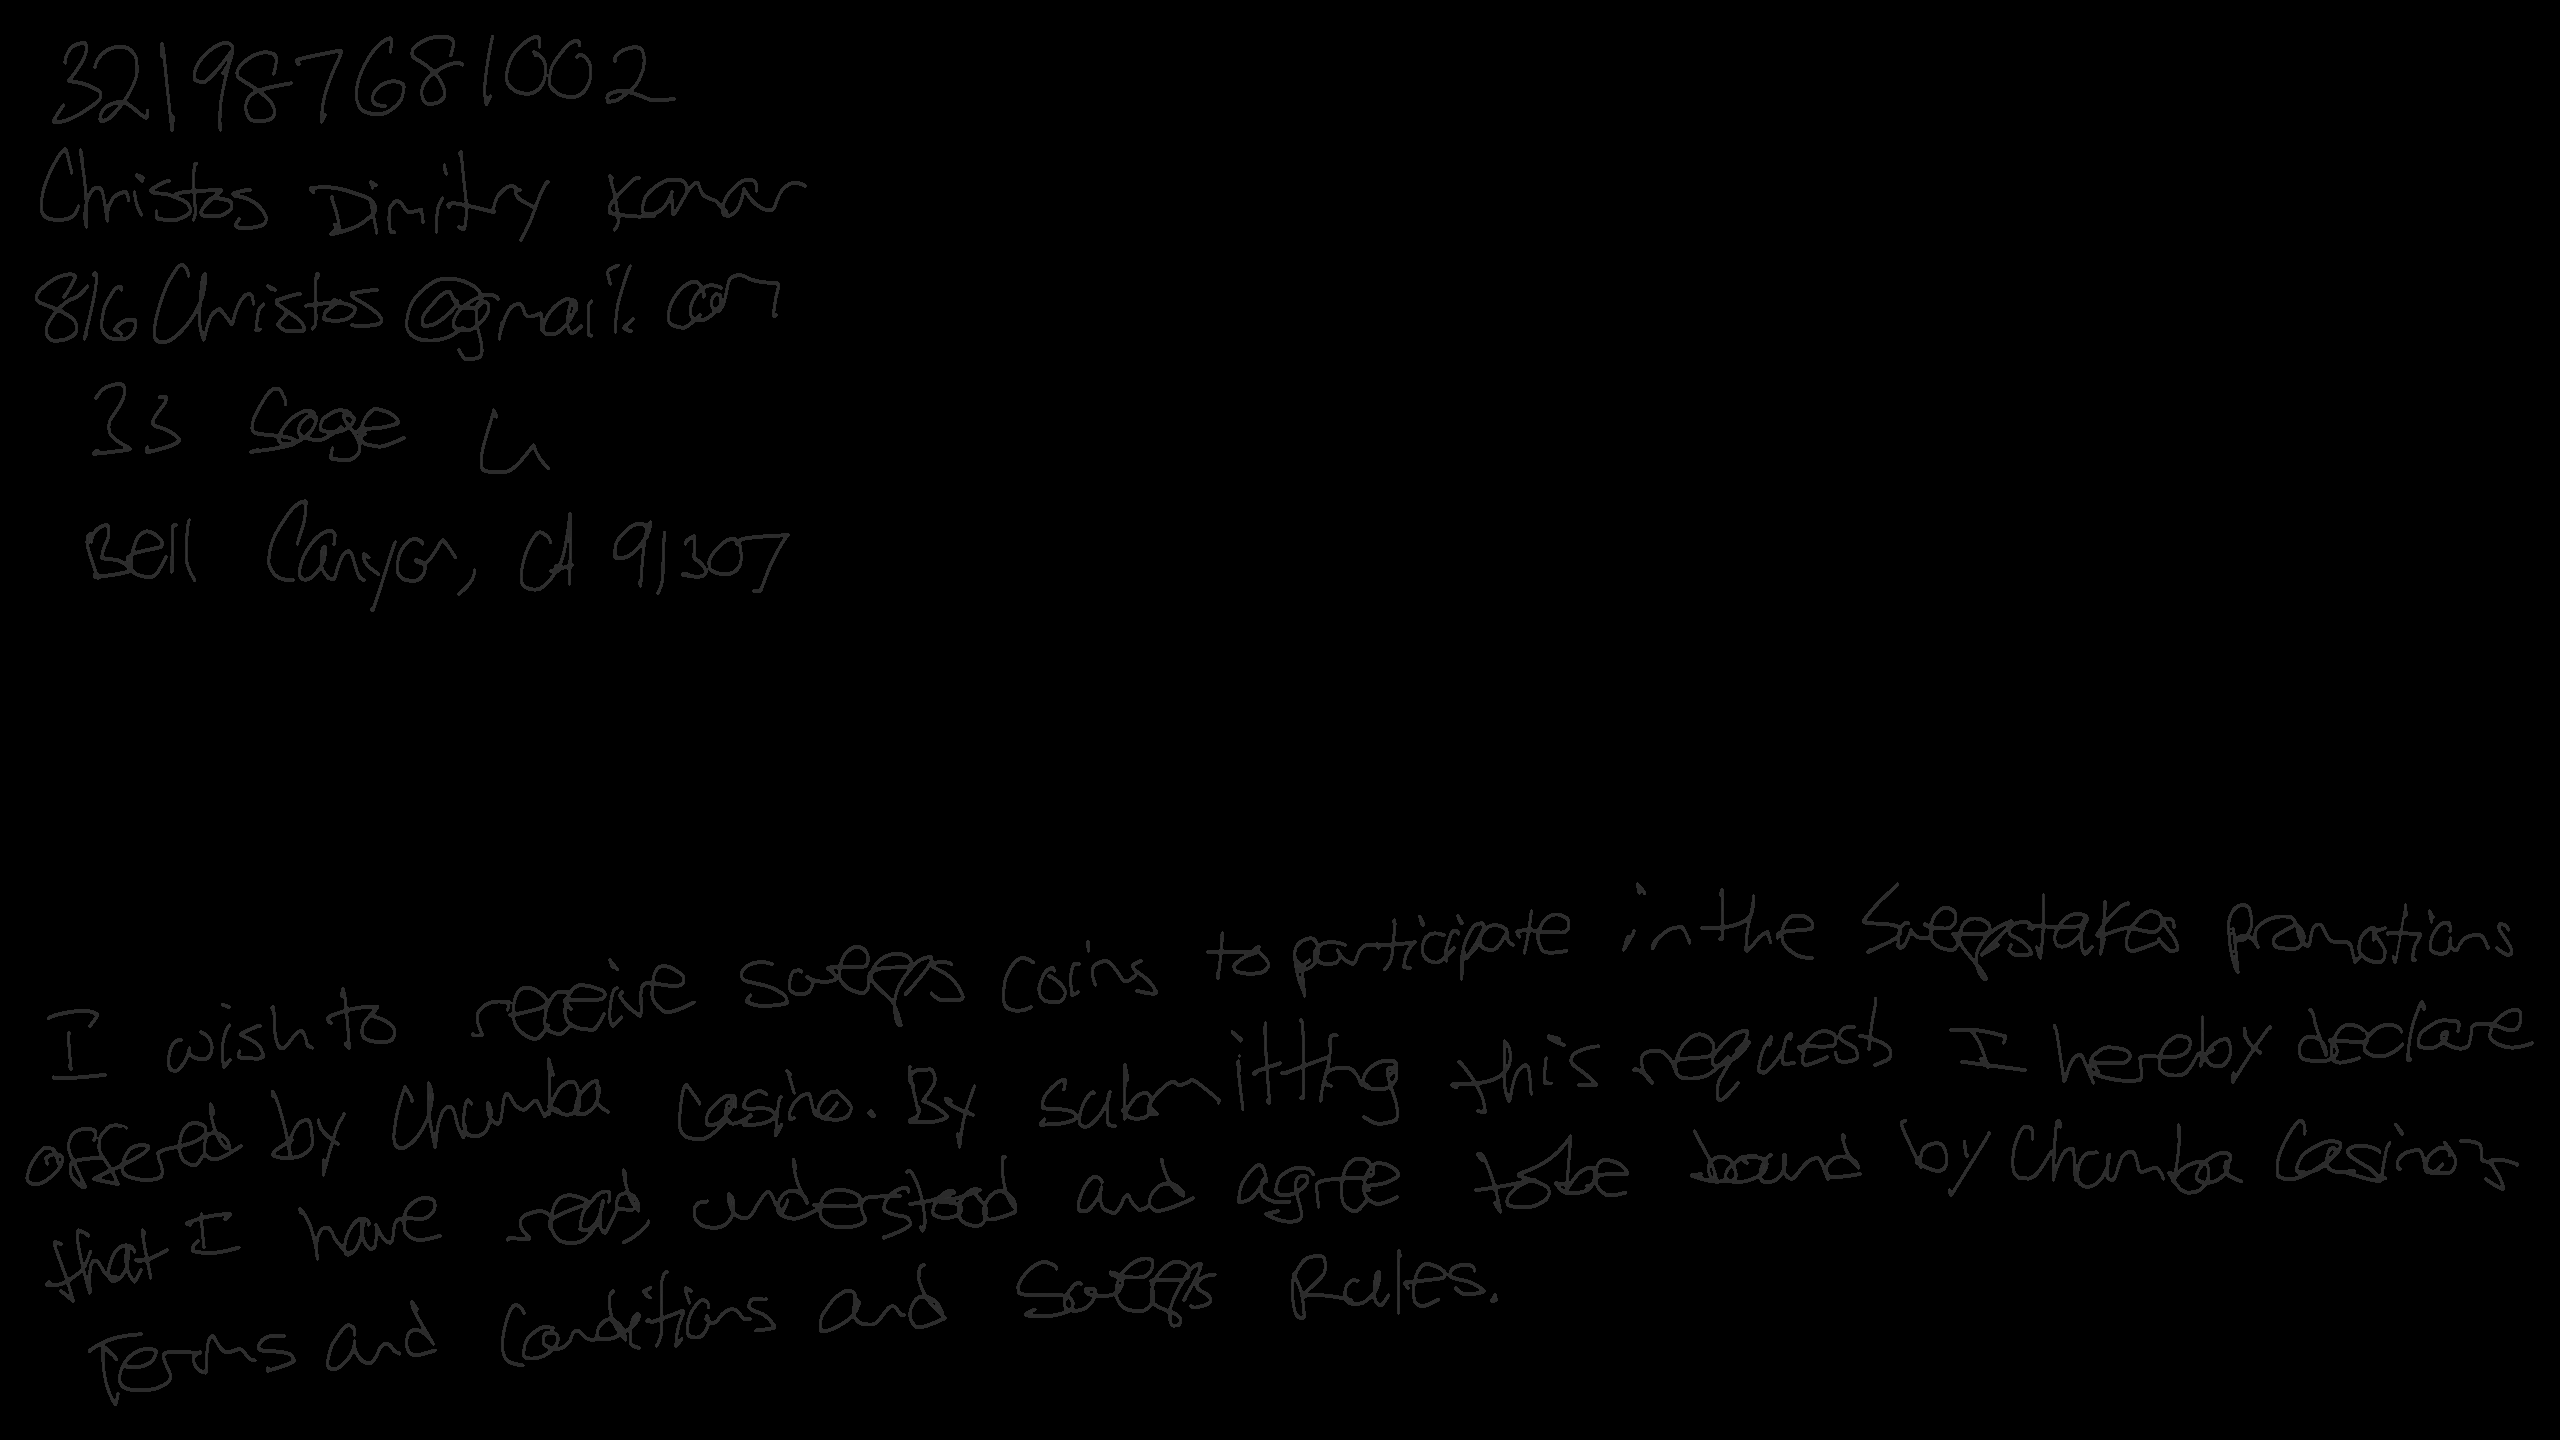 321987681002
Christos Dimitry
816Christos@gmail.com
33 Sage Ln
Bell Canyon, CA 91307
I wish to receive sweeps coins to participate in the Sweepstakes promotions
offered by Chumba Casino. By submitting this request I hereby declare
that I have read, understood and agree to be bound by Chumba Casino's
Terms and Conditions and Sweeps Rules.